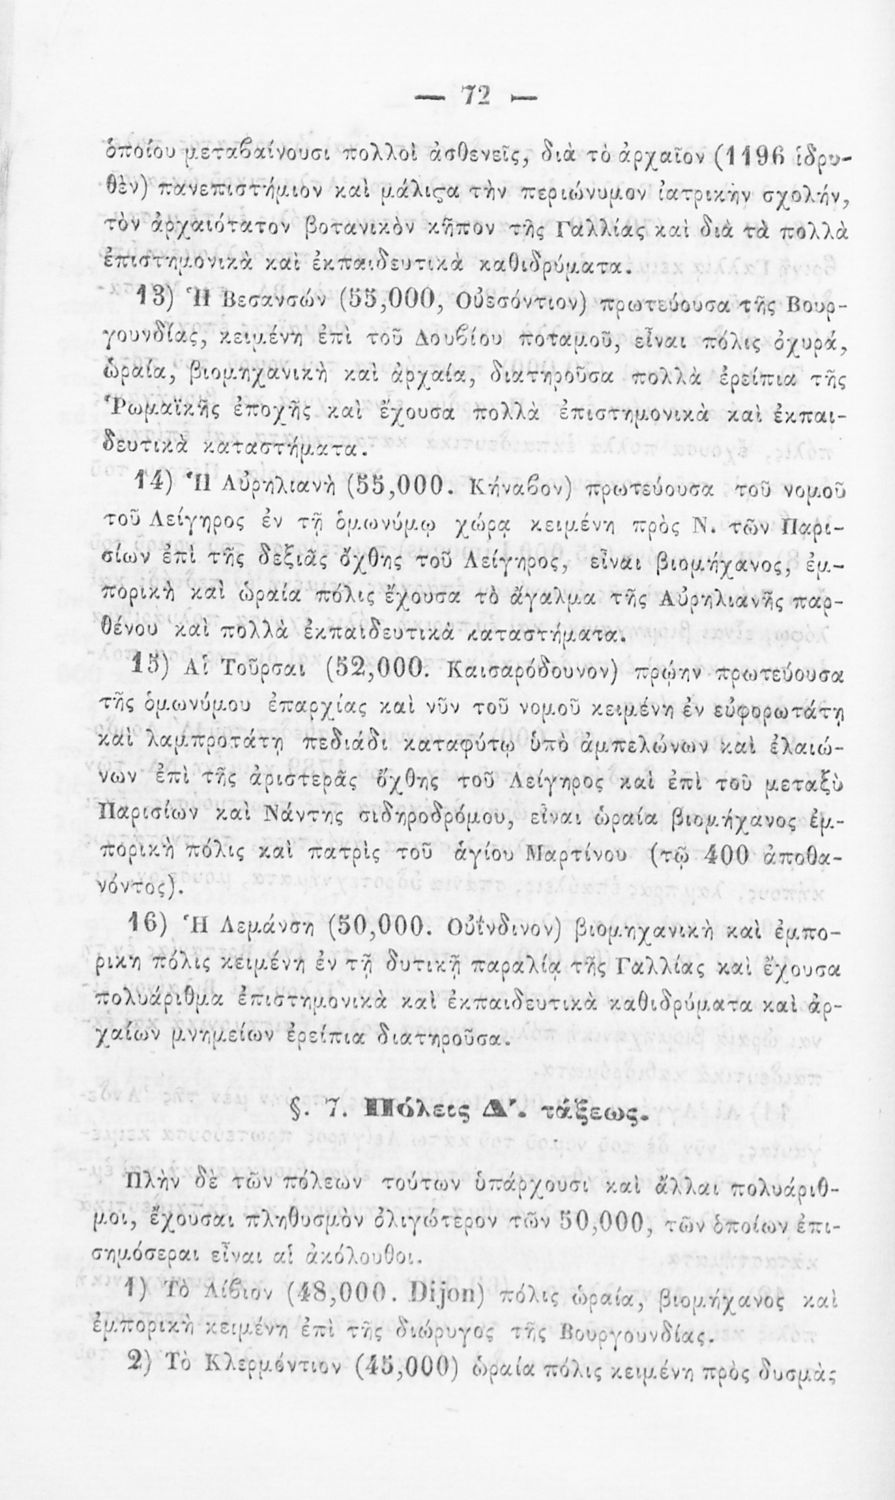 — 72 —
ὁποίου μεταβαίνουσι πολλοὶ ἀσθενεῖς, διὰ τὸ ἀρχαῖον (1196 ἱδρυ-
θὲν) πανεπιστήμιον καὶ μάλιϛα τὴν περιώνυμον ἰατρικὴν σχολήν,
τὸν ἀρχαιότατον βοτανικὸν κῆπον τῆς Γαλλίας καὶ διὰ τὰ πολλὰ
ἐπιστημονικὰ καὶ ἐκπαιδευτικὰ καθιδρύματα.
13) Ἡ Βεσανσών (55,000, Οὐεσόντιον) πρωτεύουσα τῆς Βουρ-
γουνδίας, κειμένη ἐπὶ τοῦ Δουβίου ποταμοῦ, εἶναι πόλις ὀχυρά,
ὡραία, βιομηχανικὴ καὶ ἀρχαία, διατηροῦσα πολλὰ ἐρείπια τῆς
Ῥωμαϊκῆς ἐποχῆς καὶ ἔχουσα πολλὰ ἐπιστημονικὰ καὶ ἐκπαι-
δευτικὰ καταστήματα.
14) Ἡ Αὐρηλιανὴ (55,000. Κήναβον) πρωτεύουσα τοῦ νομοῦ
τοῦ Λείγηρος ἐν τῇ ὁμωνύμῳ χώρᾳ κειμένη πρὸς Ν. τῶν Παρι-
σίων ἐπὶ τῆς δεξιᾶς ὄχθης τοῦ Λείγηρος, εἶναι βιομήχανος, ἐμ-
πορικὴ καὶ ὡραία πόλις ἔχουσα τὸ ἄγαλμα τῆς Αὐρηλιανῆς παρ-
θένου καὶ πολλὰ ἐκπαιδευτικὰ καταστήματα.
15) Αἱ Τοῦρσαι (52,000. Καισαρόδουνον) πρῴην πρωτεύουσα
τῆς ὁμωνύμου ἐπαρχίας καὶ νῦν τοῦ νομοῦ κειμένη ἐν εὐφορωτάτῃ
καὶ λαμπροτάτῃ πεδιάδι καταφύτῳ ὑπὸ ἀμπελώνων καὶ ἐλαιώ-
νων ἐπὶ τῆς ἀριστερᾶς ὄχθης τοῦ Λείγηρος καὶ ἐπὶ τοῦ μεταξὺ
Παρισίων καὶ Νάντης σιδηροδρόμου, εἶναι ὡραία βιομήχανος ἐμ-
πορικὴ πόλις καὶ πατρὶς τοῦ ἁγίου Μαρτίνου (τῷ 400 ἀποθα-
νόντος).
16) Ἡ Λεμάνση (50,000. Οὐΐνδινον) βιομηχανικὴ καὶ ἐμπο-
ρικη πόλις κειμένη ἐν τῇ δυτικῇ παραλίᾳ τῆς Γαλλίας καὶ ἔχουσα
πολυάριθμα ἐπιστημονικὰ καὶ ἐκπαιδευτικὰ καθιδρύματα καὶ ἀρ-
χαίων μνημείων ἐρείπια διατηροῦσα.
§. 7. Πόλεις Δ΄. τάξεως.
Πλὴν δὲ τῶν πόλεων τούτων ὑπάρχουσι καὶ ἄλλαι πολυάριθ-
μοι, ἔχουσαι πληθυσμὸν ὀλιγώτερον τῶν 50,000, τῶν ὁποίων ἐπι-
σημόσεραι εἶναι αἱ ἀκόλουθοι.
1) Τὸ Δίβιον (48,000. Dijon) πόλις ὡραία, βιομήχανος καὶ
ἐμπορικὴ κειμένη ἐπὶ τῆς διώρυγος τῆς Βουργουνδίας.
2) Τὸ Κλερμόντιον (45,000) ὡραία πόλις κειμένη πρὸς δυσμὰς